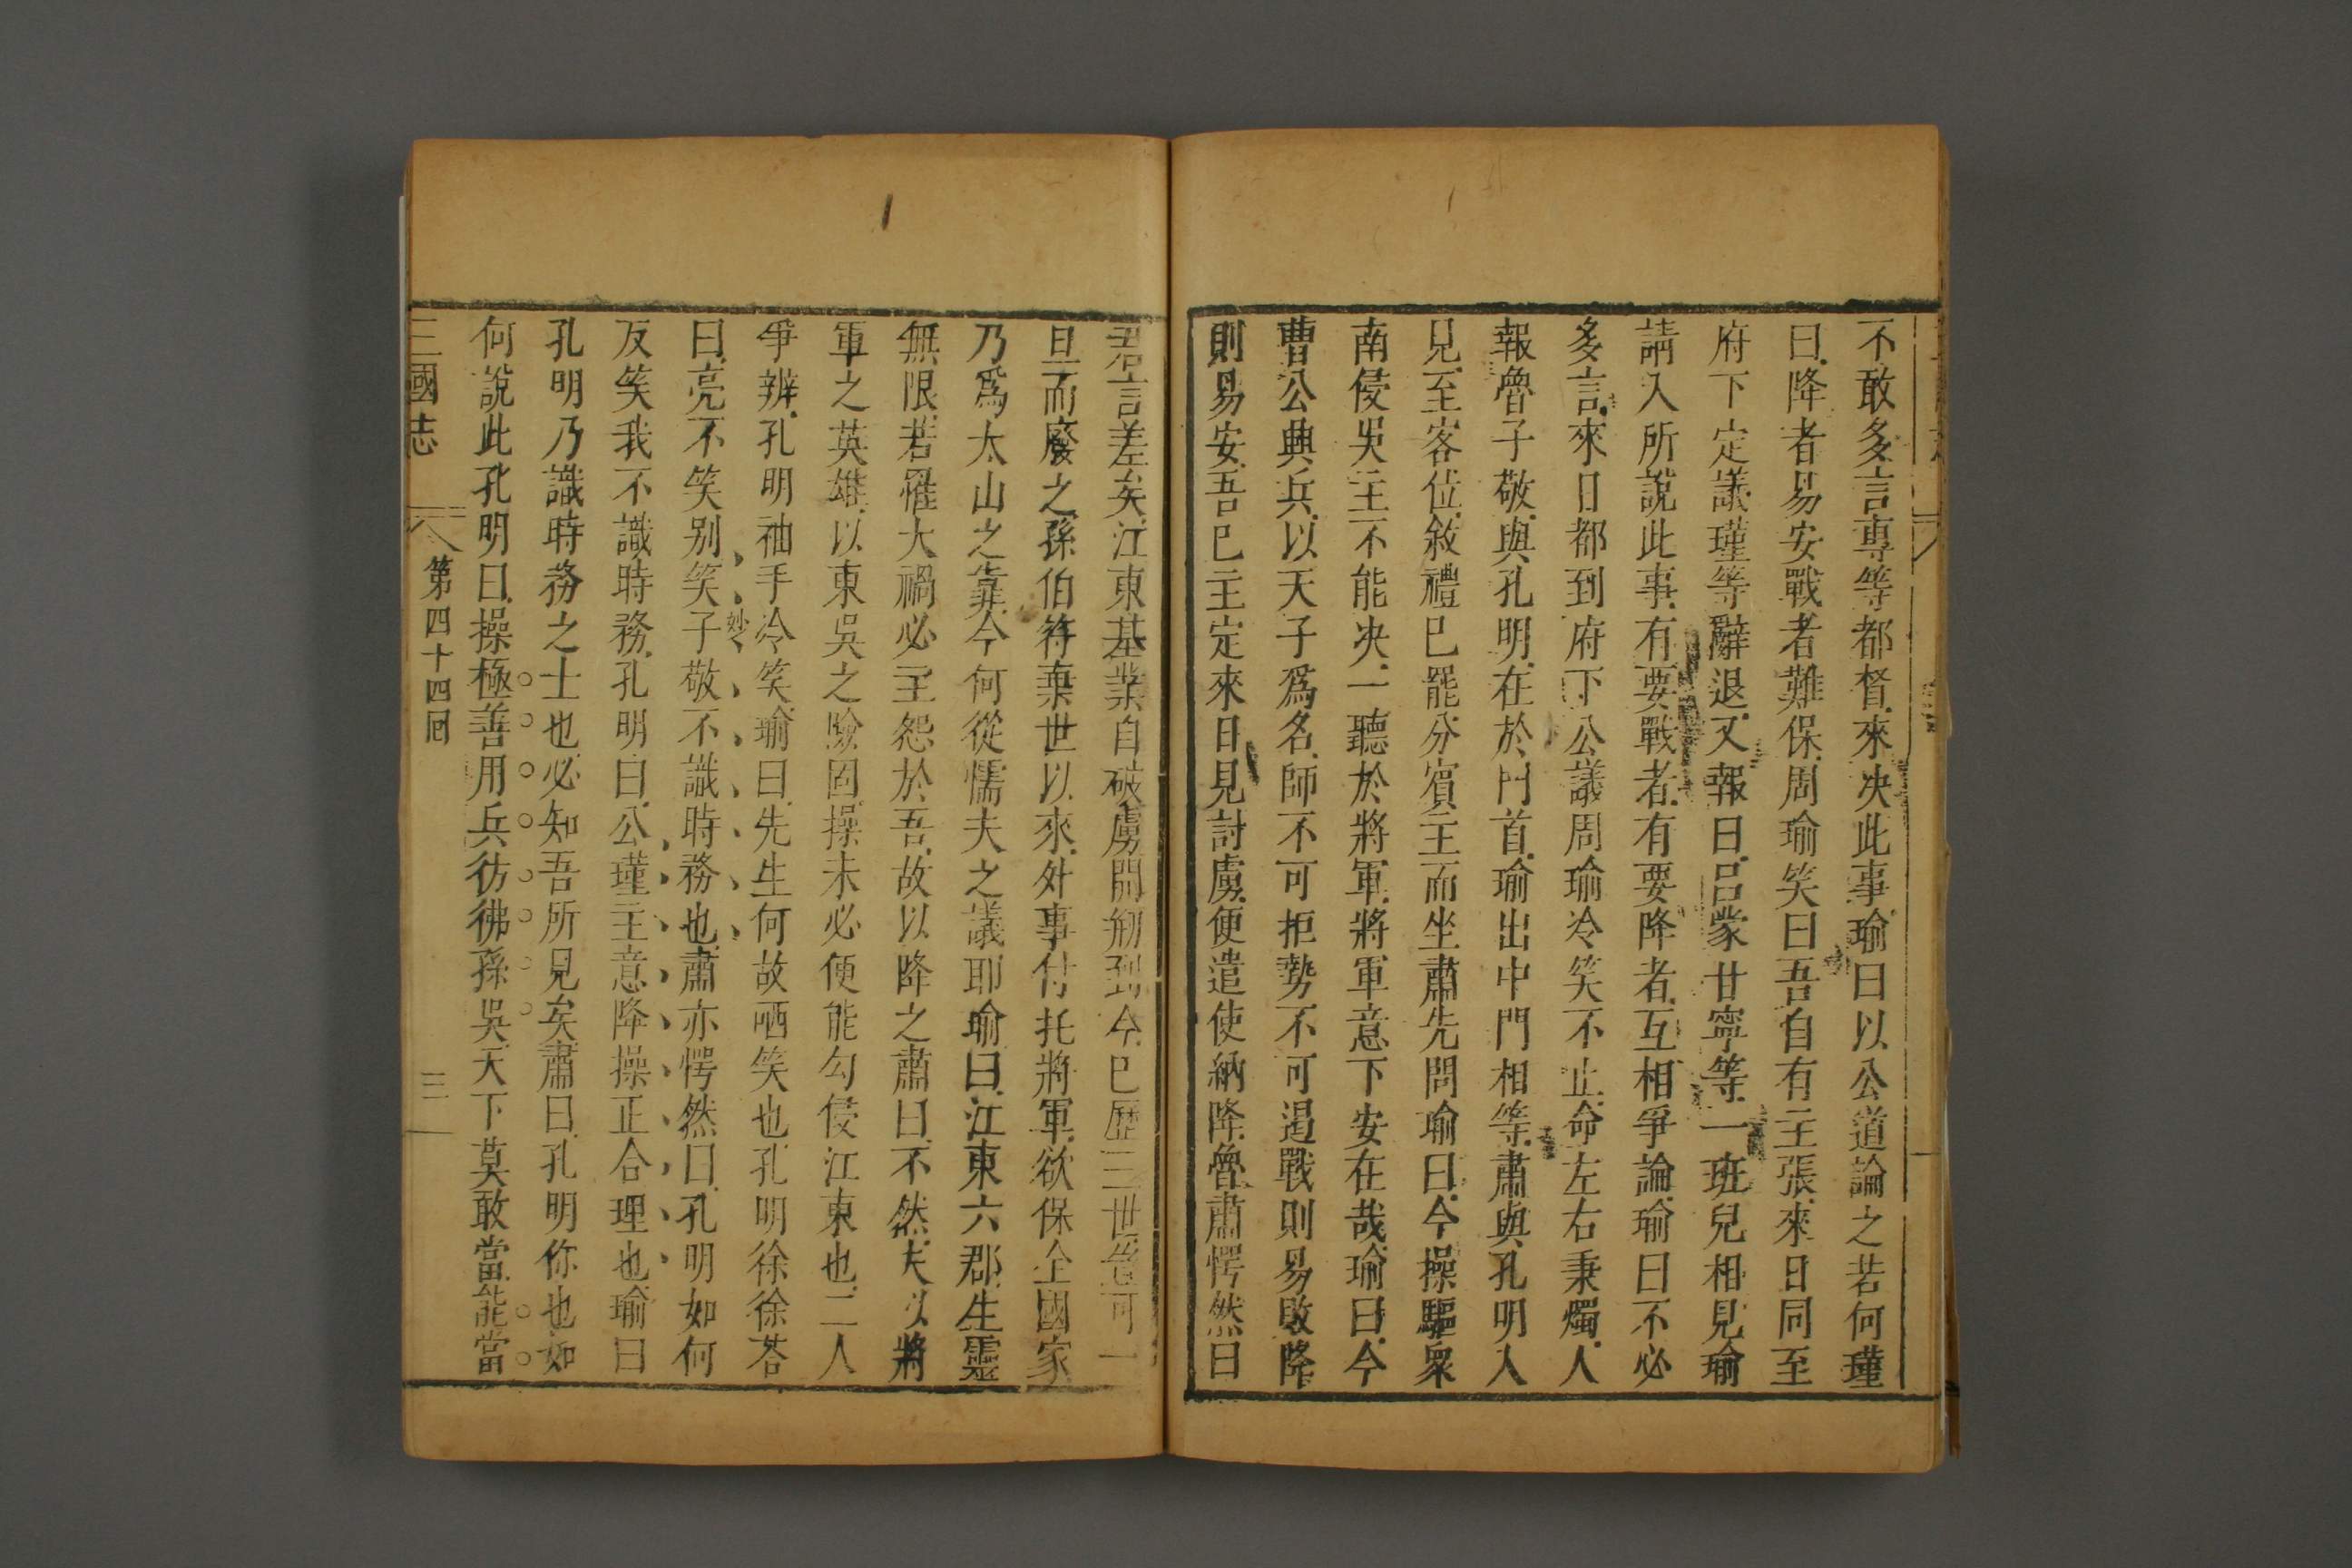 不敢多言專等都督來决此事瑜曰以公道論之若何瑾
曰降者易安戰者難保周瑜笑曰吾自有主張來日同至
府下定議瑾等辭退又報曰呂蒙甘寧等一班兒相見瑜
請入所說此事有要戰者有要降者互相爭論瑜曰不必
多言來日都到府下公議周瑜冷笑不止命左右秉燭人
報魯子敬與孔明在於門首瑜出中門相等肅與孔明入
見至客位敘禮巳罷分賓主而坐肅先問瑜曰今操驅衆
南侵吳主不能决一聽於將軍將軍意下安在哉瑜曰今
曹公興兵以天子爲名師不可拒勢不可遏戰則易敗降
則易安吾巳主定來日見討虜便遣使納降魯肅愕然曰
君言差矣江東基業自破虜開刱到今巳歷三世豈可一
旦而廢之孫伯符棄世以來外事付托將軍欲保全國家
乃爲太山之靠今何從懦夫之議耶瑜曰江東六郡生靈
無限若罹大禍必主怨於吾故以降之肅曰不然夫以將
軍之英雄以東吳之險固操未必便能勾侵江東也二人
爭辨孔明袖手冷笑瑜曰先生何故哂笑也孔明徐徐荅
曰亮不笑别笑子敬不識時務也肅亦愕然曰孔明如何
妙
反笑我不識時務孔明曰公瑾主意降操正合理也瑜曰
孔明乃識時務之士也必知吾所見矣肅曰孔明你也如
何說此孔明曰操極善用兵彷彿孫吳天下莫敢當能當
三國志
第四十四囘
三